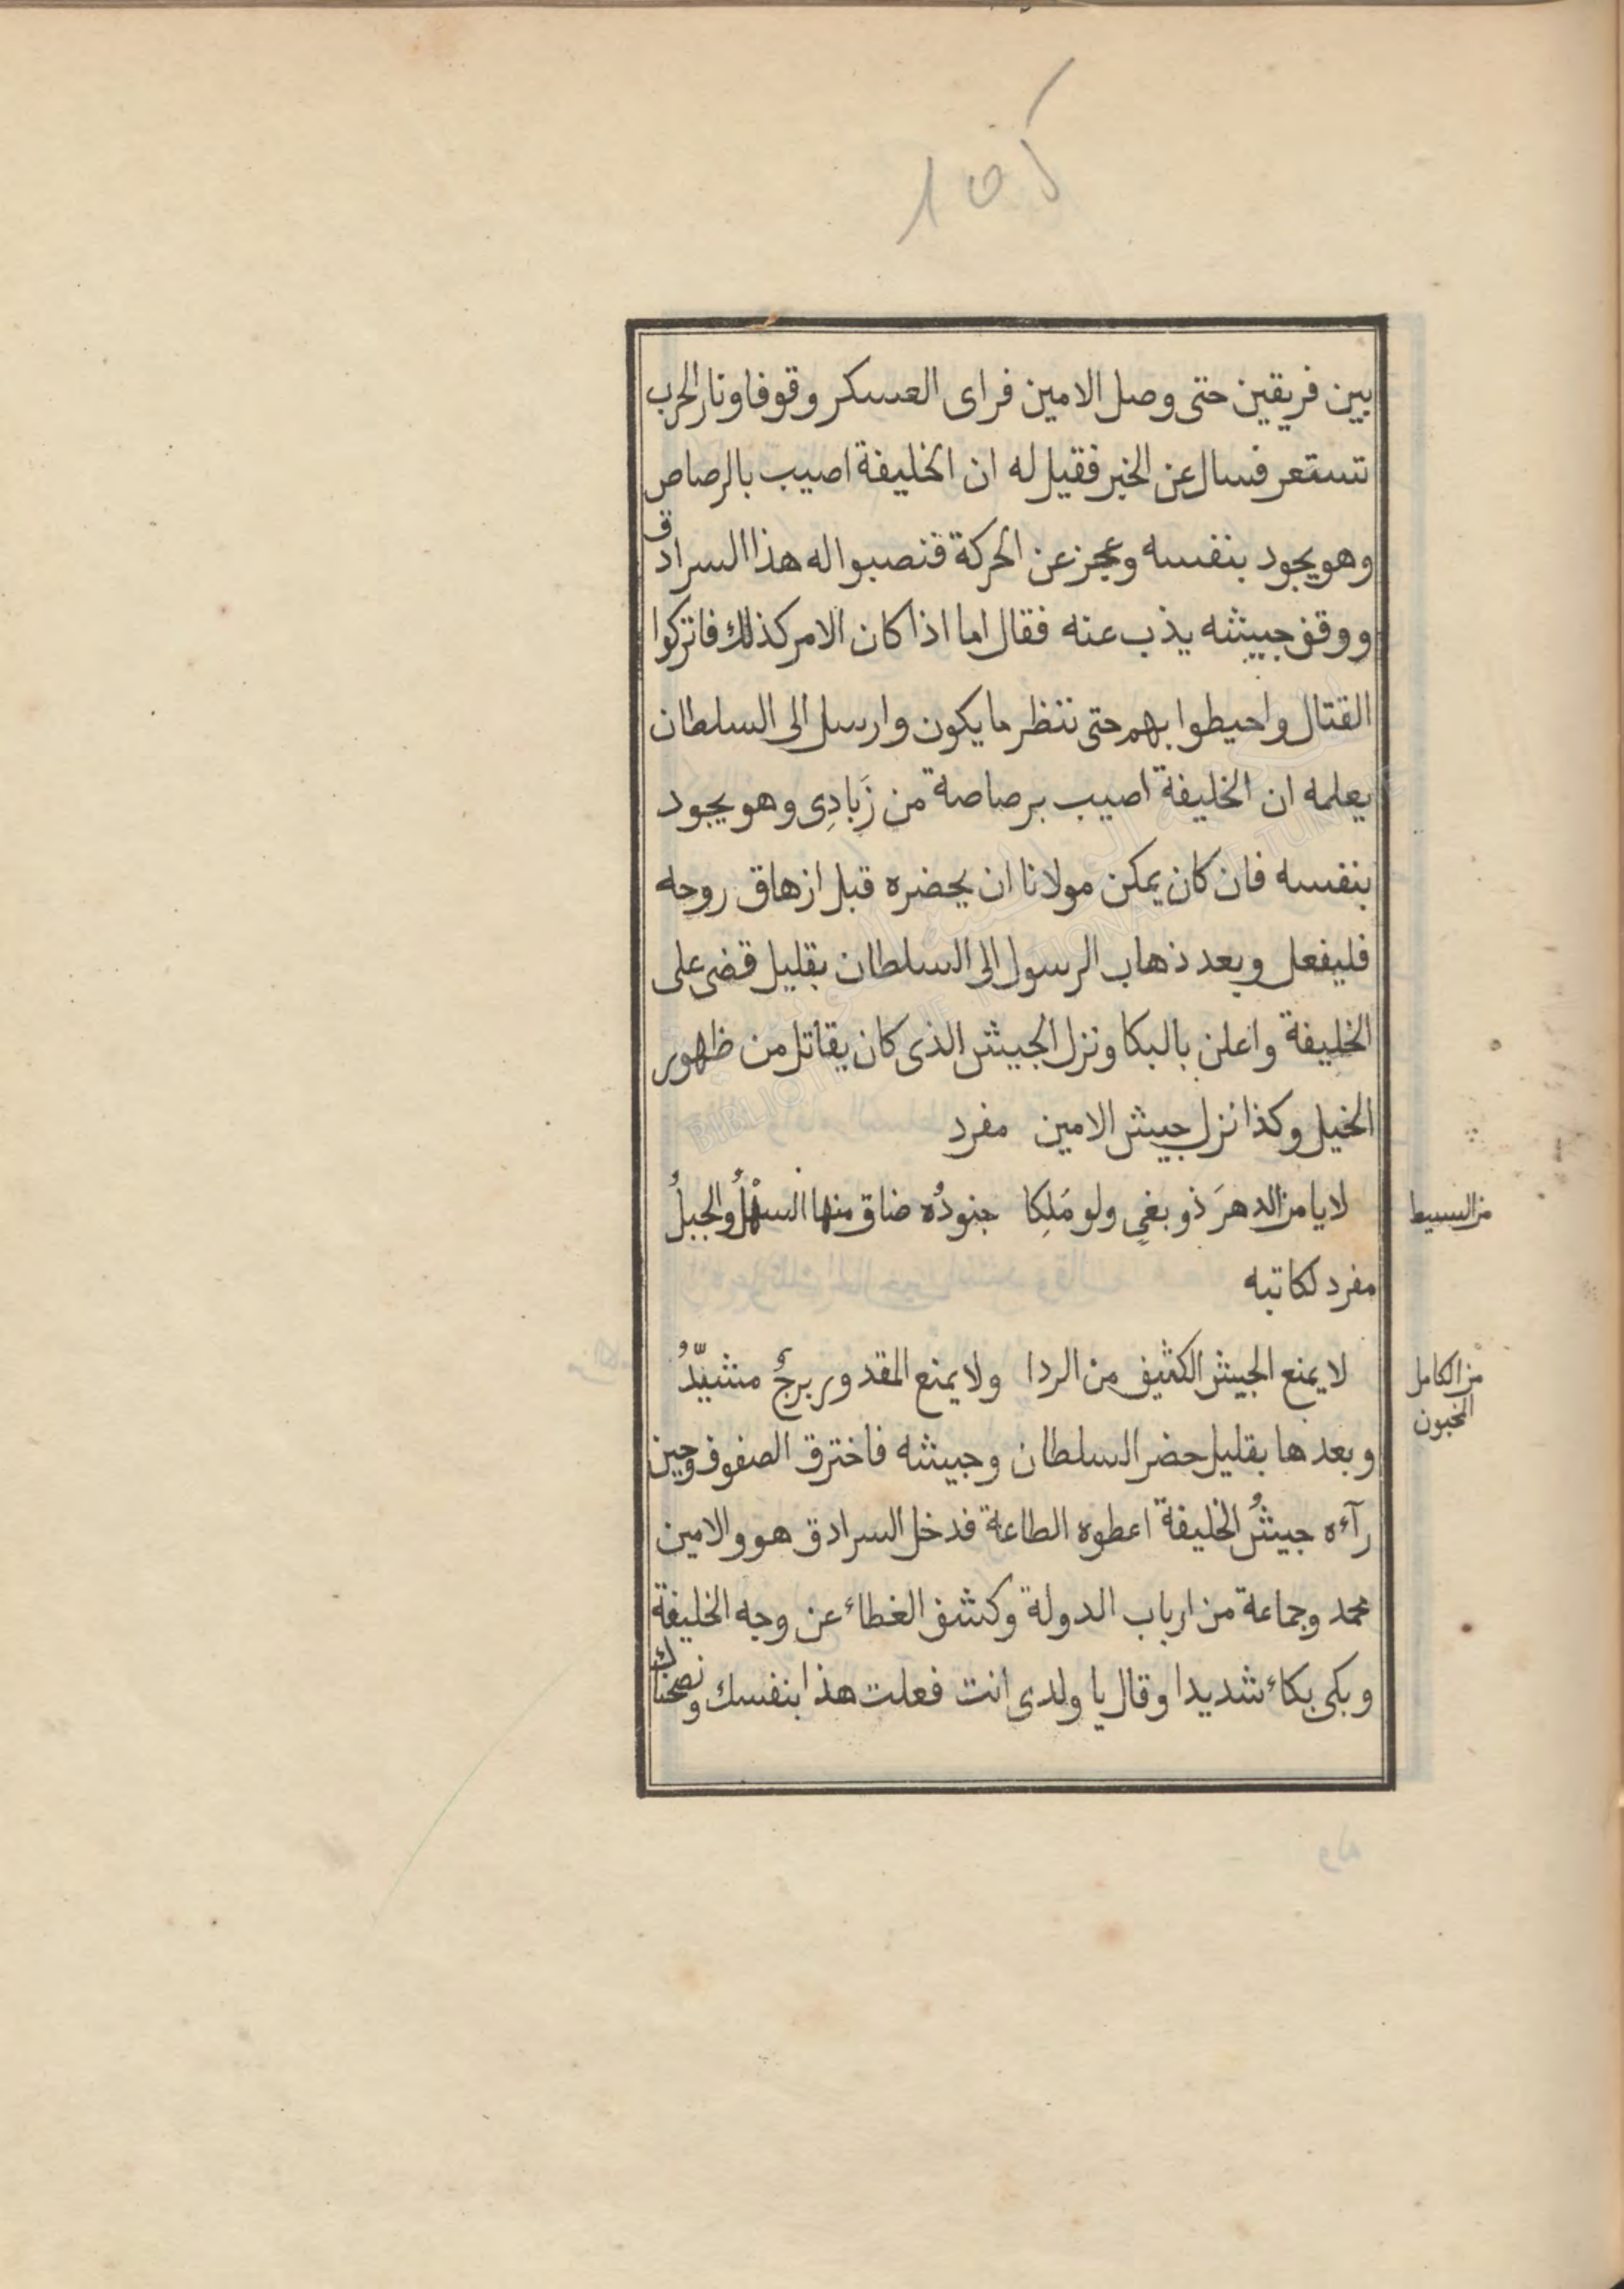 بين فريقين حتى وصل الامين فراى العسكر وقوفا ونار الحرب
تستعر فسال عن الخبر فقيل له ان الخليفة اصيب بالرصاص
وهو يجود بنفسه وعجز عن الحركة فنصبوا له هذا السرادق
ووقف جيشه يذب عنه فقال اما اذا كان الامر كذلك فاتركوا
القتال واحيطوا بهم حتى ننظر ما يكون وارسل الى السلطان
يعلمه ان الخليفة اصيب برصاصة من زَبادِى وهو يجود
بنفسه فان كان يمكن مولانا ان يحضره قبل ازهاق روحه
فليفعل وبعد ذهاب الرسول الى السلطان بقليل قضى على
الخليفة واعلن بالبكا ونزل الجيش الذى كان يقاتل من ظهور
الخيل وكذا نزل جيش الامين مفرد
لا يامن الدهرَ ذو بغىٍ ولو مَلِكا جنودُه ضاق منها السهْلُ والجبلُ
من البسيط
مفرد لكاتبه
لا يمنع الجيش الكثيف من الردا ولا يمنع المقدور برجٌ مشيّدُ
من الكامل
المخبون
وبعدها بقليل حضر السلطان وجيشه فاخترق الصفوف وحين
رآءه جيشُ الخليفة اعطوه الطاعة فدخل السرادق هو والامين
محمد وجماعة من ارباب الدولة وكشف الغطاء عن وجه الخليفة
وبكى بكاء شديدا وقال يا ولدى انت فعلت هذا بنفسك ونصحناك